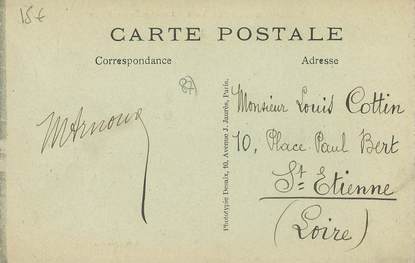 15€
CARTE POSTALE
Correspondance
Adresse
87
MArnoux
Phototypie Desaix, 10, Avenue J. Jaurès, Paris.
Monsieur Louis Cottin
10, Place Paul Bert
St Etienne
(Loire)